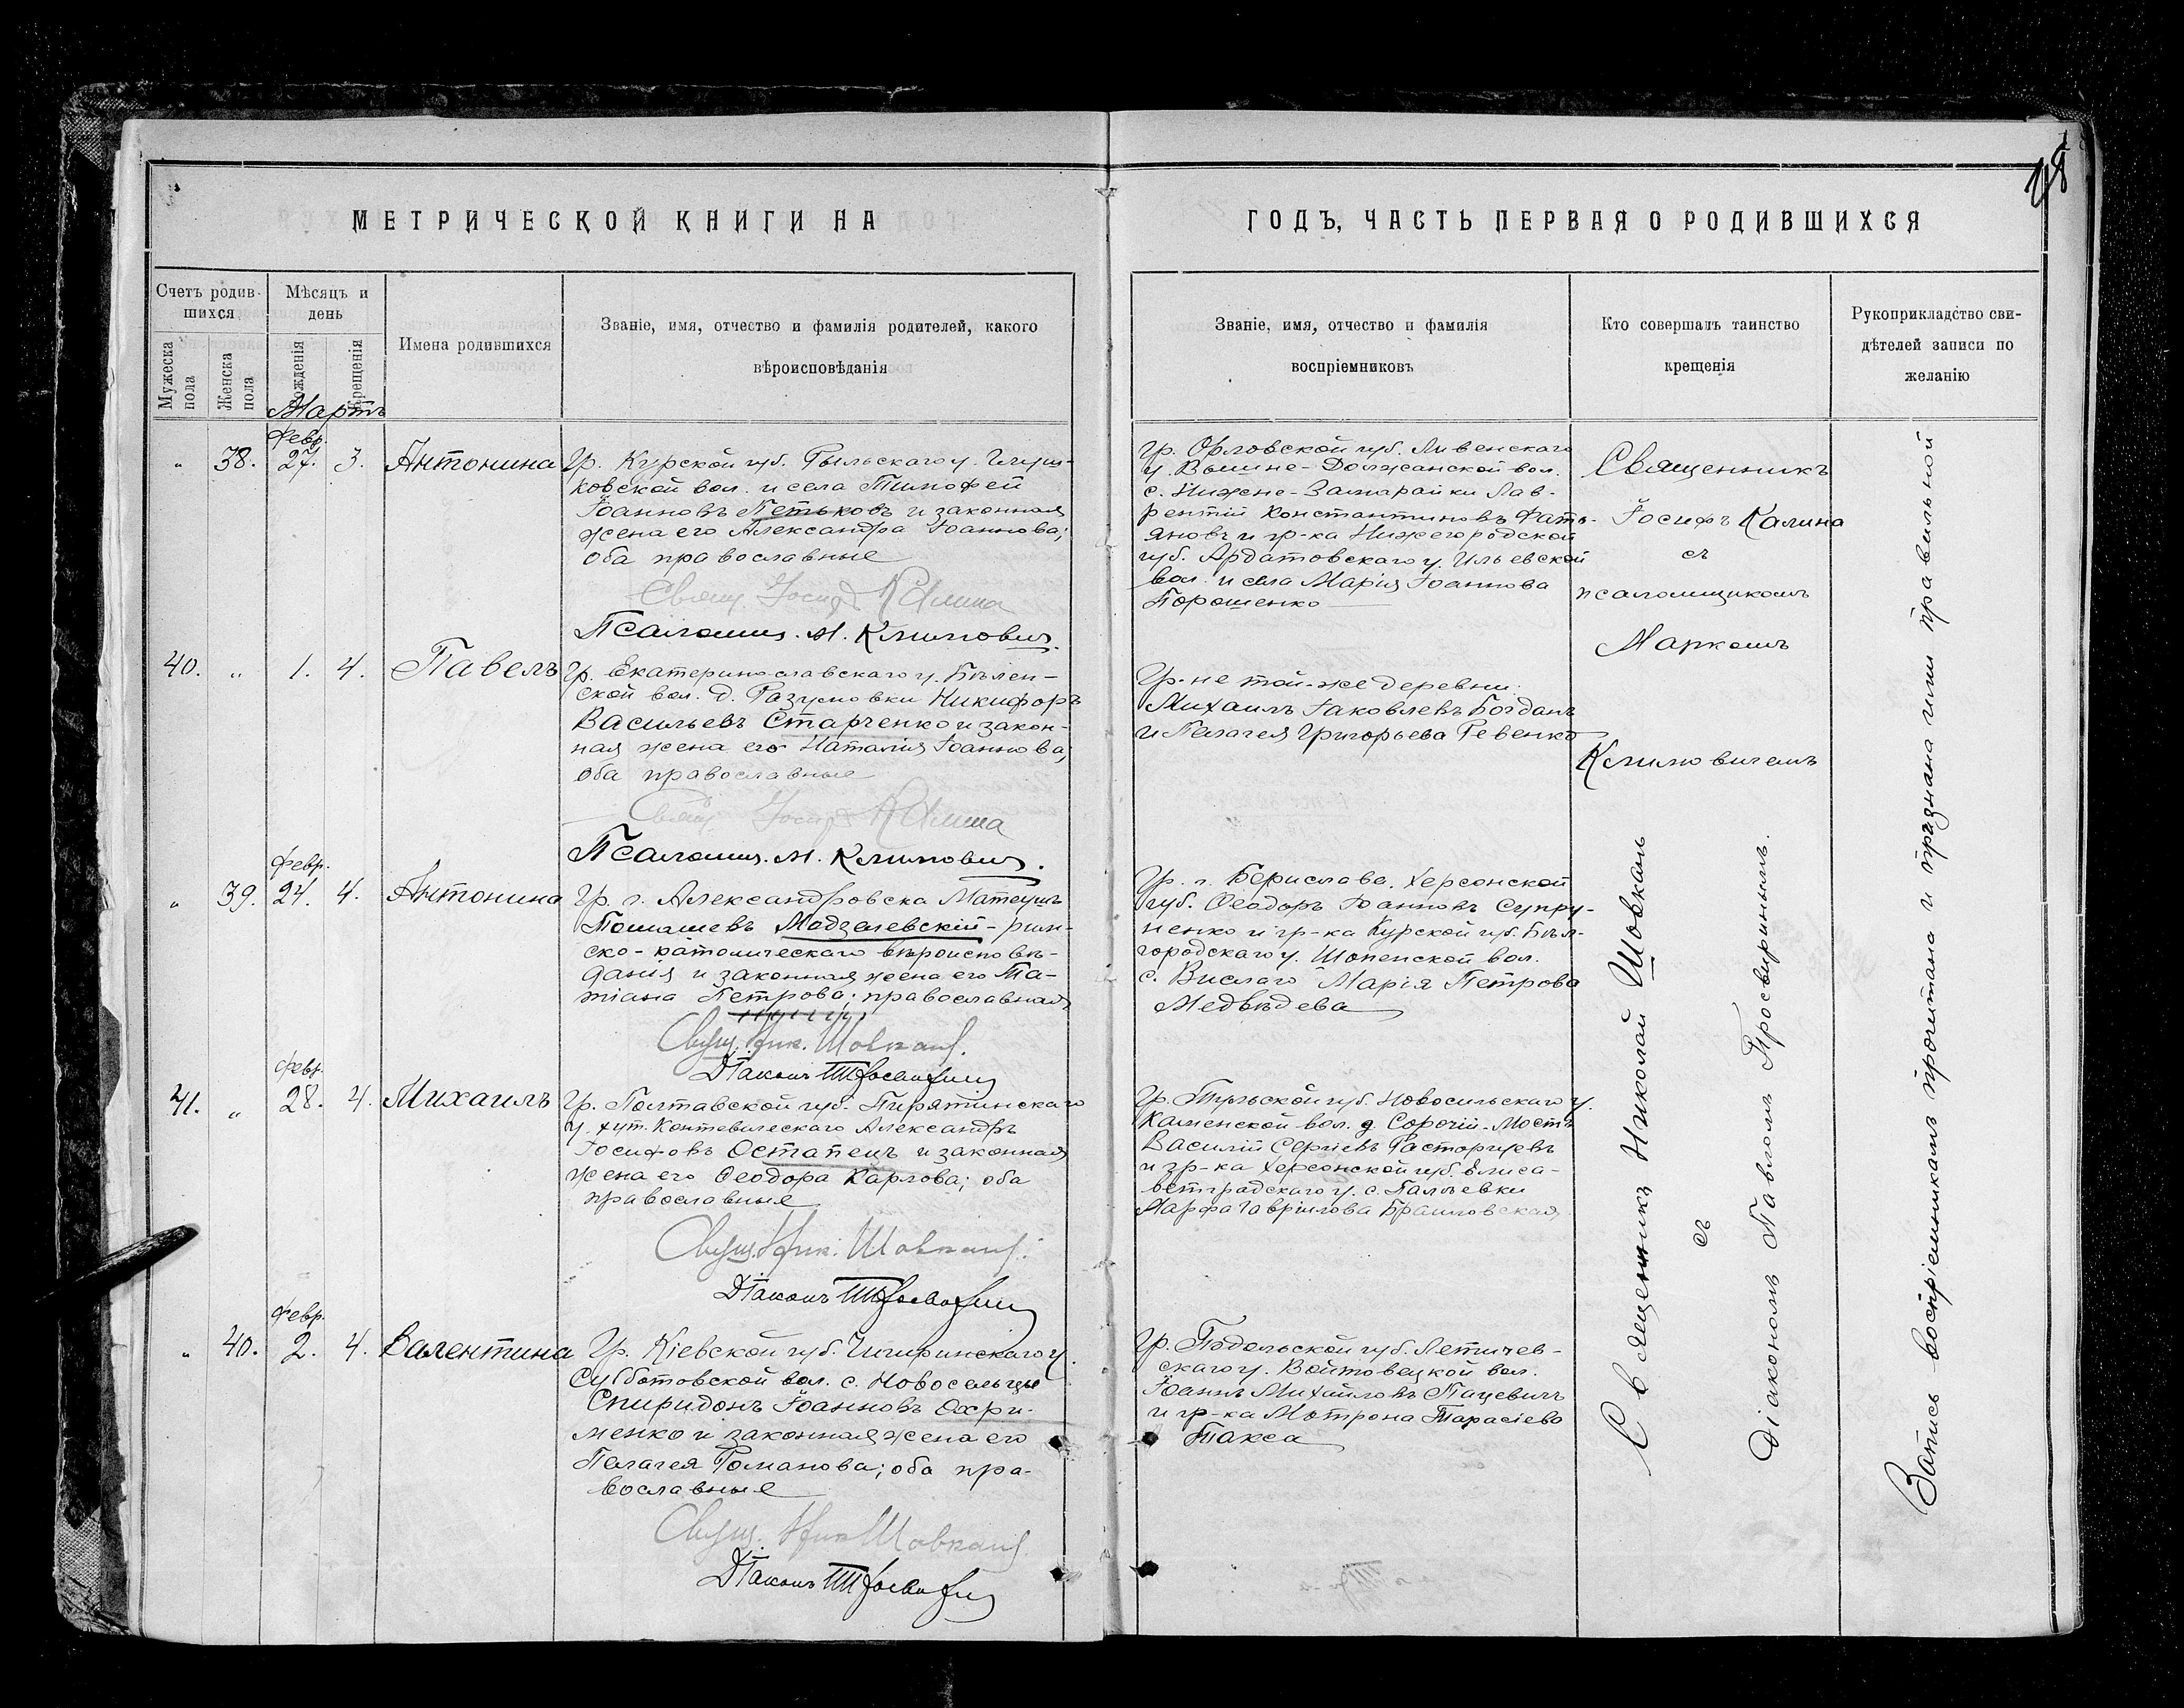 МЕТРИЧЕСКОЙ КНИГИ НА
ГОДЪ, ЧАСТЬ ПЕРВАЯ О РОДИВШИХСЯ
Счетъ родив-
шихся
Мужеска пола
Женска пола
Мѣсяцъ и
день
Рожденія
Крещенія
Имена родившихся
Званіе, имя, отчество и фамилія родителей, какого
вѣроисповѣданія
Званіе, имя, отчество и фамилія
воспріемниковъ
Кто совершалъ таинство
крещенія
Рукоприкладство сви-
дѣтелей записи по
желанію
Мартъ
Февр.
" 38. 27. 3. Антонина
Гр. Курской губ. Рыльскаго у.
ковской вол. и села Тимофей
Іоанновъ Петьковъ и законная
жена его Александра Іоаннова;
оба православные
Свящ Іосиф Калина
Псаломщ. М. Климович.
Гр. Орловской губ. Ливенскаго
у. Вышне-Должанской вол.
с. Нижне-Замарайки Лав-
рентій Константиновъ Фать-
яновъ и гр-ка Нижегородской
губ. Ардатовскаго у. Ильевской
вол. и села Марія Іоаннова
Порошенко
Священникъ
Іосифъ Калина
съ
псаломщикомъ
Маркомъ
Климовичемъ
40. " 1. 4. Павелъ
Гр. Екатеринославскаго у. Бѣлен-
ской вол. д. Разумовки Никифоръ
Васильевъ Старченко и закон-
ная жена его Наталія Іоаннова;
оба православные
Свящ. Іосиф Калина
Псаломщ. М. Климович.
Гр-не той-же деревни:
Михаилъ Іаковлевъ Богданъ
и Пелагея Григорьева Ревенко
Февр.
" 39. 24. 4. Антонина
Гр. г. Александровска Матеушъ
Томашевъ Мадзелевскій - рим-
ско-католическаго вѣроисповѣ-
данія и законная жена его Та-
тіана Петрова; православная
Свящ. Ник. Шовкань.
Діаконъ
Гр. г. Берислава, Херсонской
губ. Ѳеодоръ Іоанновъ Супру-
ненко и гр-ка Курской губ. Бѣл-
городскаго у. Шопенской вол.
с. Вислаго Марія Петрова
Медвѣдева
Священникъ Николай Шовкань
съ
Діакономъ Павломъ Просвиринымъ.
Февр.
41. " 28. 4. Михаилъ
Гр. Полтавской губ. Пирятинскаго
у. хут. Александръ
Іосифовъ Остапецъ и законная
жена его Ѳеодора Карпова; оба
православные
Свящ. Ник. Шовкань.
Діаконъ
Гр. Тульской губ. Новосильскаго у.
Каменской вол. д. Сорочій-Мостъ
Василій Сергіевъ Расторгуевъ
и гр-ка Херсонской губ. Елиса-
ветградскаго у. с. Палѣевки
Марфа Гавріилова Браиловская
Февр.
" 40. 2. 4. Валентина
Гр. Кіевской губ. Чигиринскаго у.
Субботовской вол. с. Новосельцы
Спиридонъ Іоанновъ Охри-
менко и законная жена его
Пелагея Романова; оба пра-
вославные
Свящ. Ник Шовкань.
Діаконъ
Гр. Подольской губ. Летичев-
скаго у. Войтовецкой вол.
Іоаннъ Михайловъ Пацевичъ
и гр-ка Мотрона Тарасіева
Такса
Запись воспріемникамъ прочитана и признана ими правильной